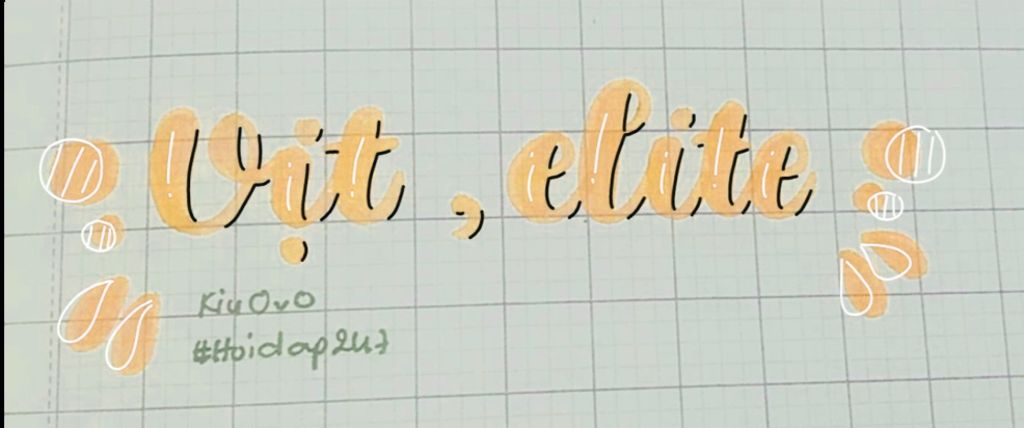 Vịt , elite
Kiu OvO
#Hoidap247